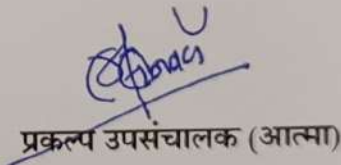 प्रकल्प उपसंचालक (आत्मा)